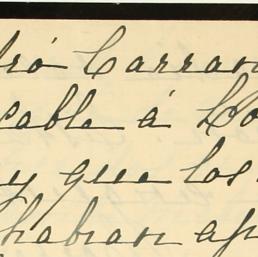 ró Carran
cable á Co
y que los
habian ap